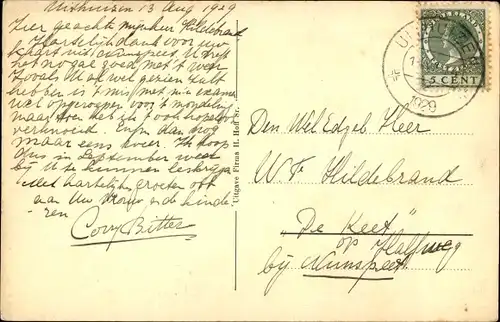 Uithuizen 13 Aug 1929
Zeer geachte mijnheer Hildebrand
Hartelijk dank voor uw
kaart uit Nunspeet. U treft
het nogal goed met 't weer
Zooals U al wel gezien zult
hebben is 't mis met m'n examen
wel opgeroepen voor 't mondeling
maar toen heb ik 't ook hopeloos
verknoeid. Enfin dan nog
maar eens over. Ik hoop
dus in September weer
bij U te kunnen
Met hartelijke groeten ook
aan Uw vrouw en de kinde-
ren
Cory Bitter
Uitgave Firma H. Hoff Sr.
NEDERLAND
5 CENT
UITHUIZEN
1929
Den Wel Edgeb Heer
W F Hildebrand
"De Keet"
op Halfweg
bij Nunspeet